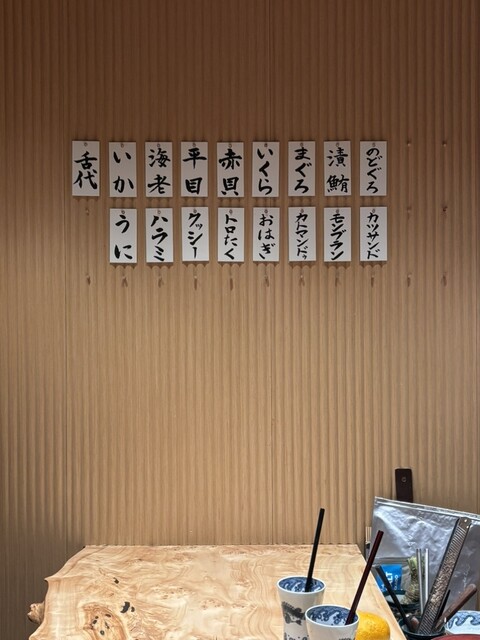 舌代
いか
海老
平目
赤貝
いくら
まぐろ
漬鮪
のどぐろ
うに
ハラミ
ウッシー
トロたく
おはぎ
カトマンドゥ
モンブラン
カツサンド